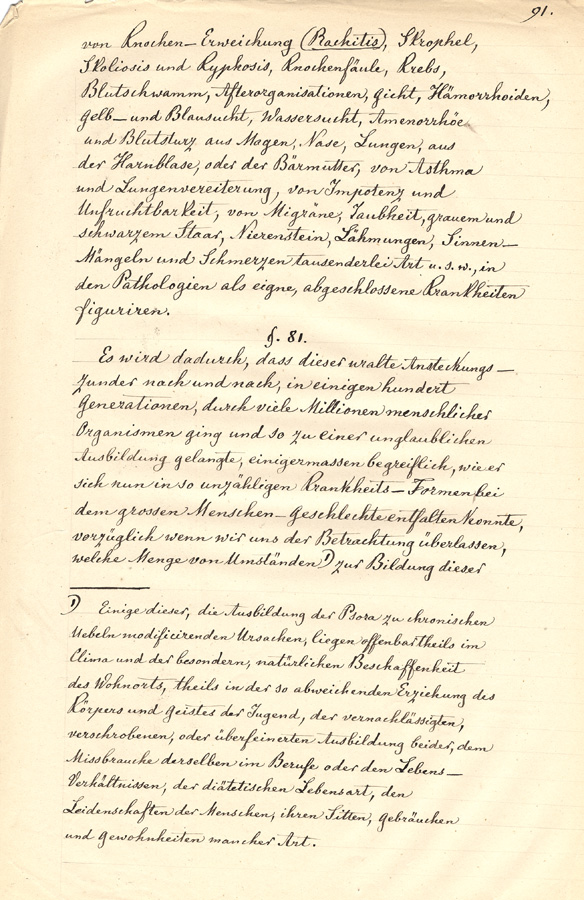 91.
von Knochen-Erweichung (Rachitis), Skrophel,
Skoliosis und Kyphosis, Knochenfäule, Krebs,
Blutschwamm, Afterorganisationen, Gicht, Hämorrhoiden,
Gelb- und Blausucht, Wassersucht, Amenorrhöe
und Blutsturz aus Magen, Nase, Lungen, aus
der Harnblase, oder der Bärmutter, von Asthma
und Lungenvereiterung, von Impotenz und
Unfruchtbarkeit, von Migräne, Taubheit, grauem und
schwarzem Staar, Nierenstein, Lähmungen, Sinnen-
Mängeln und Schmerzen tausenderlei Art u.s.w., in
den Pathologien als eigne, abgeschlossene Krankheiten
figuriren.
§. 81.
Es wird dadurch, dass dieser uralte Ansteckungs-
Zunder nach und nach, in einigen hundert
Generationen, durch viele Millionen menschlicher
Organismen ging und so zu einer unglaublichen
Ausbildung gelangte, einigermassen begreiflich, wie er
sich nun in so unzähligen Krankheits-Formen bei
dem grossen Menschen-Geschlechte entfalten konnte,
vorzüglich wenn wir uns der Betrachtung überlassen,
welche Menge von Umständen 1) zur Bildung dieser
1) Einige dieser, die Ausbildung der Psora zu chronischen
Uebeln modificirenden Ursachen, liegen offenbar theils im
Clima und der besondern, natürlichen Beschaffenheit
des Wohnorts, theils in der so abweichenden Erziehung des
Körpers und Geistes der Jugend, der vernachlässigten,
verschrobenen, oder überfeinerten Ausbildung beider, dem
Missbrauche derselben im Berufe oder den Lebens-
Verhältnissen, der diätetischen Lebensart, den
Leidenschaften der Menschen, ihren Sitten, Gebräuchen
und Gewohnheiten mancher Art.